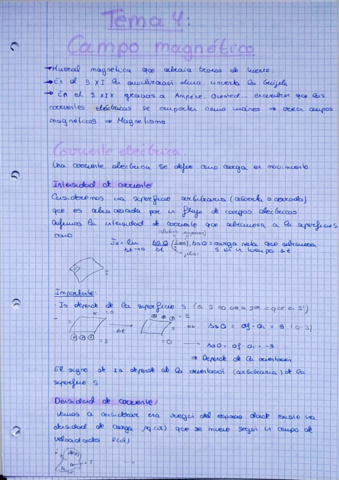 Tema 4:
Campo magnético
→ Mineral magnética que atraía trozos de hierro
→ En el S XI la civilización china inventa la brújula
→ En el S XIX gracias a Ampère, Oersted... descubren que las
corrientes eléctricas se comportan como imanes → crean campos
magnéticos → Magnetismo
Corriente eléctrica:
Una corriente eléctrica se define como carga en movimiento
Intensidad de corriente:
Consideremos una superficie arbitraria (abierta o cerrada)
que es atravesada por un flujo de cargas eléctricas
Definimos la intensidad de corriente que atraviesa a la superficie S
como
Importante:
· Is depende de la superficie S
→ Depende de la orientación
El signo de Is depende de la orientación (arbitraria) de la
superficie S
Densidad de corriente:
Vamos a considerar una región del espacio donde existe una
densidad de carga que se mueve según un campo de
velocidades